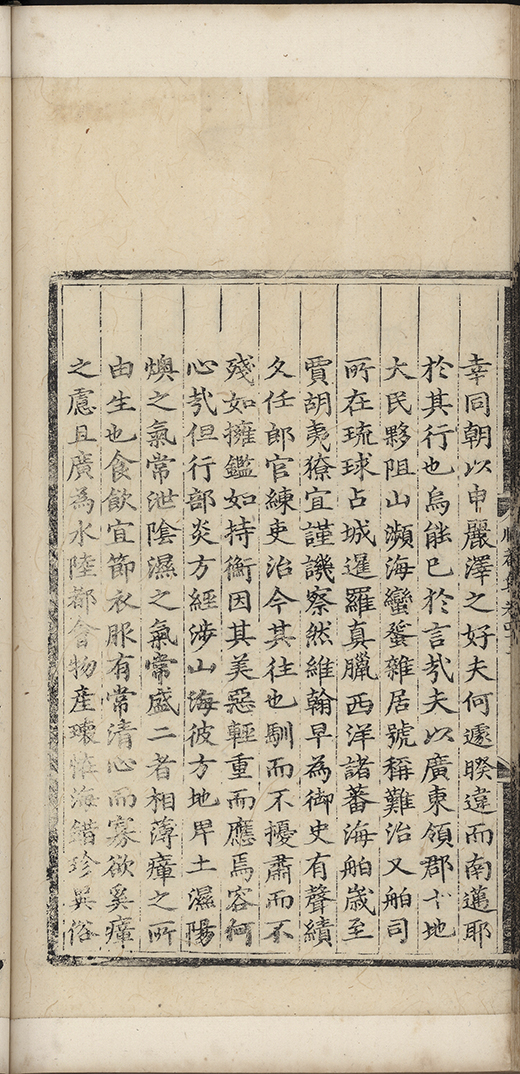 幸同朝以申麗澤之好夫何遽暌違而南邁耶
於其行也烏能已於言㢤夫以廣東領郡十地
大民夥阻山瀕海蠻蜑雜居號稱難治又舶司
所在琉球占城暹羅真臘西洋諸蕃海舶歲至
賈胡夷獠宜謹譏察然維翰早為御史有聲績
久任郎官練吏治今其往也馴而不擾肅而不
殘如擁鑑如持衡因其美惡輕重而應焉容何
心㢤但行部炎方經涉山海彼方地卑土濕陽
燠之氣常泄陰濕之氣常盛二者相薄瘴之所
由生也食飲宜節衣服有常清心而寡欲奚瘴
之慮且廣為水陸都會物産瓌恠海錯珍異俗